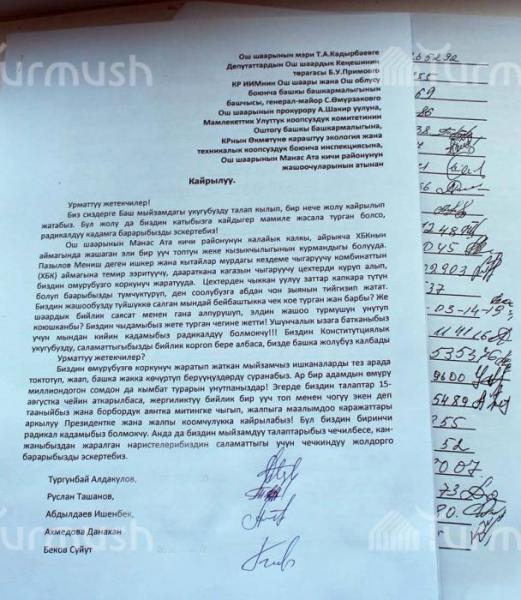 Ош шаарынын мэри Т.А.Кадырбаевге
Депутаттардын Ош шаардык Кеңешинин
төрагасы Б.У.Примовго
КР ИИМнин Ош шаары жана Ош облусу
боюнча башкы башкармалыгынын
башчысы, генерал-майор С.Өмурзаковго
Ош шаарынын прокурору А.Шакир уулуна,
Мамлекеттик Улуттук коопсуздук комитетинин
Оштогу башкы башкармалыгына,
КРнын Өкмөтүнө караштуу экология жана
техникалык коопсуздук боюнча инспекциясына,
Ош шаарынын Манас Ата кичи районунун
жашоочуларынын атынан
Кайрылуу.
Урматтуу жетекчилер!
Биз сиздерге Баш мыйзамдагы укугубузду талап кылып, бир нече жолу кайрылып
жатабыз. Бул жолу да биздин катыбызга кайдыгер мамиле жасала турган болсо,
радикалдуу кадамга барарыбызды эскертебиз!
Ош шаарынын Манас Ата кичи районунун калайык калкы, айрыкча ХБКнын
аймагында жашаган эли бир ууч топтун жеке кызыкчылыгынын курмандыгы болууда.
Пазылов Мениш деген ишкер жана кытайлар мурдагы кездеме чыгаруучу комбинаттын
(ХБК) аймагына темир эзритүүчү, даараткана кагазын чыгаруучу цехтерди куруп алып,
биздин омурубузго коркунуч жаратууда. Цехтерден чыккан уулуу заттар капкара түтүн
болуп баарыбызды тумчуктуруп, ден соолугубузга абдан чон зыянын тийгизип жатат.
Биздин жашообузду түйшүккө салган мындай бейбаштыкка чек кое турган жан барбы? Же
шаардык бийлик саясат менен гана алпурушуп, элдин жашоо турмушун унутуп
коюшканбы? Биздин чыдамыбыз жете турган чегине жетти! Ушунчалык ызага батканыбыз
үчүн мындан кийин кадамыбыз радикалдуу болмокчу!!! Биздин Конституциялык
укугубузду, саламаттыгыбызды бийлик коргоп бере албаса, бизде башка жолубуз калбады
Урматтуу жетекчилер?
Биздин өмүрүбүзгө коркунуч жаратып жаткан мыйзамсыз ишканаларды тез арада
токтотуп, жаап, башка жакка көчүртүп берүүңүздөрдү суранабыз. Ар бир адамдын өмүрү
миллиондогон сомдон да кымбат турарын унутпаныздар! Эгерде биздин талаптар 15-
августка чейин аткарылбаса, жергиликтүү бийлик бир ууч топ менен чогуу экен деп
тааныйбыз жана борбордук аянтка митингке чыгып, жалпыга маалымдоо каражаттары
аркылуу Президентке жана жалпы коомчулукка кайрылабыз! Бул биздин биринчи
радикал кадамыбыз болмокчу. Анда да биздин мыйзамдуу талаптарыбыз чечилбесе, кан-
жаныбыздан жаралган наристелерибиздин саламаттыгы үчүн чечкиндүү жолдорго
барарыбызды эскертебиз.
Тургунбай Алдакулов,
Руслан Ташанов,
Абдылдаев Ишенбек,
Ахмедова Данахан
Беков Суйут
Turmush